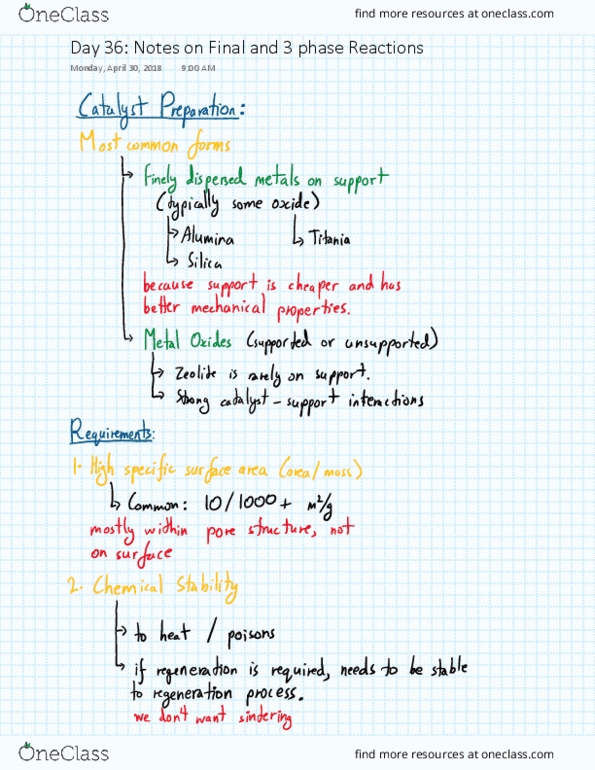 OneClass
find more resources at oneclass.com
Day 36: Notes on Final and 3 phase Reactions
Monday, April 30, 2018 9:00 AM
Catalyst Preparation:
Most common forms
Finely dispersed metals on support
(typically some oxide)
Alumina Titania
Silica
because support is cheaper and has
better mechanical properties.
Metal Oxides (supported or unsupported)
Zeolite is rarely on support.
Strong catalyst - support interactions
Requirements:
1. High specific surface area (area/mass)
Common: 10/1000+ m²/g
mostly within pore structure, not
on surface
2. Chemical Stability
to heat / poisons
if regeneration is required, needs to be stable
to regeneration process.
we don't want sindering
OneClass
find more resources at oneclass.com